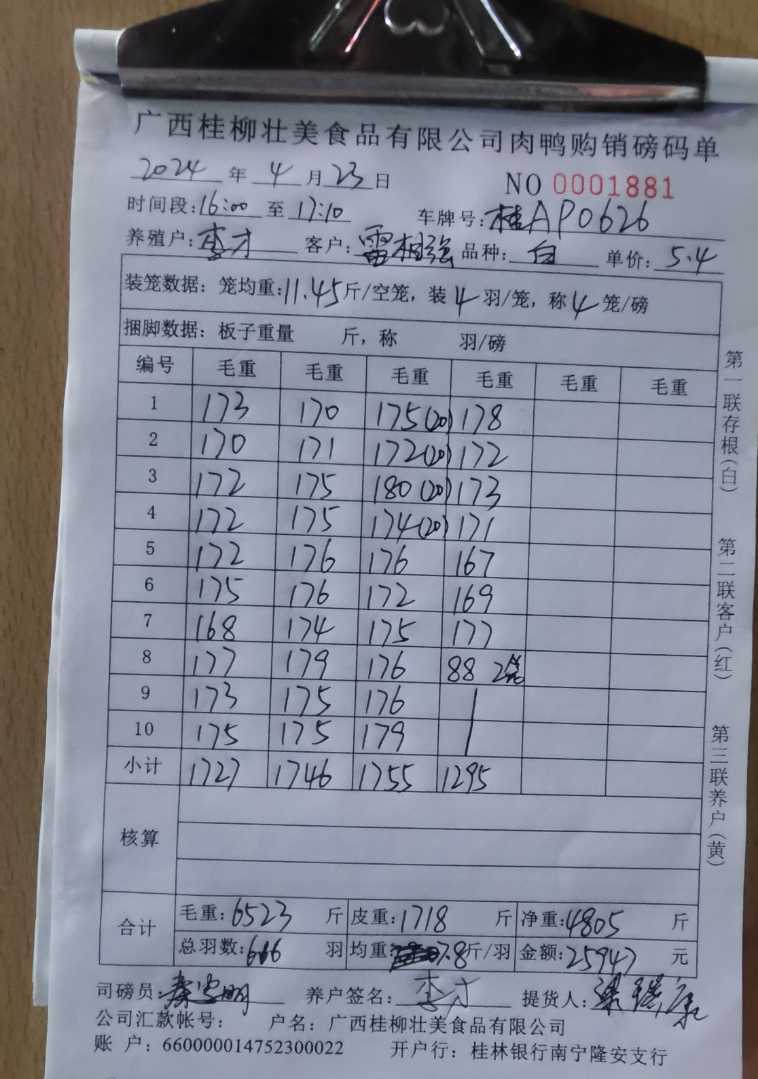 广西桂柳壮美食品有限公司肉鸭购销磅码单
2024 年 4 月 23 日 NO 0001881
时间段:16:00 至 17:10 车牌号:桂AP0626
养殖户:李才 客户:雷相强 品种:白 单价:5.4
装笼数据:笼均重:11.45斤/空笼,装4羽/笼,称4笼/磅
捆脚数据:板子重量 斤,称 羽/磅
编号 毛重 毛重 毛重 毛重 毛重 毛重
1 173 170 175(20) 178
2 170 171 172(20) 172
3 172 175 180(20) 173
4 172 175 174(20) 171
5 172 176 176 167
6 175 176 172 169
7 168 174 175 177
8 177 179 176 88 2笼
9 173 175 176
10 175 175 179
小计 1727 1746 1755 1295
核算
合计 毛重:6523 斤 皮重:1718 斤 净重:4805 斤
总羽数:616 羽 均重:7.8斤/羽 金额:25947 元
司磅员: 养户签名:李才 提货人:
公司汇款帐号: 户名:广西桂柳壮美食品有限公司
账 户:660000014752300022 开户行:桂林银行南宁隆安支行
第一联存根(白)
第二联客户(红)
第三联养户(黄)